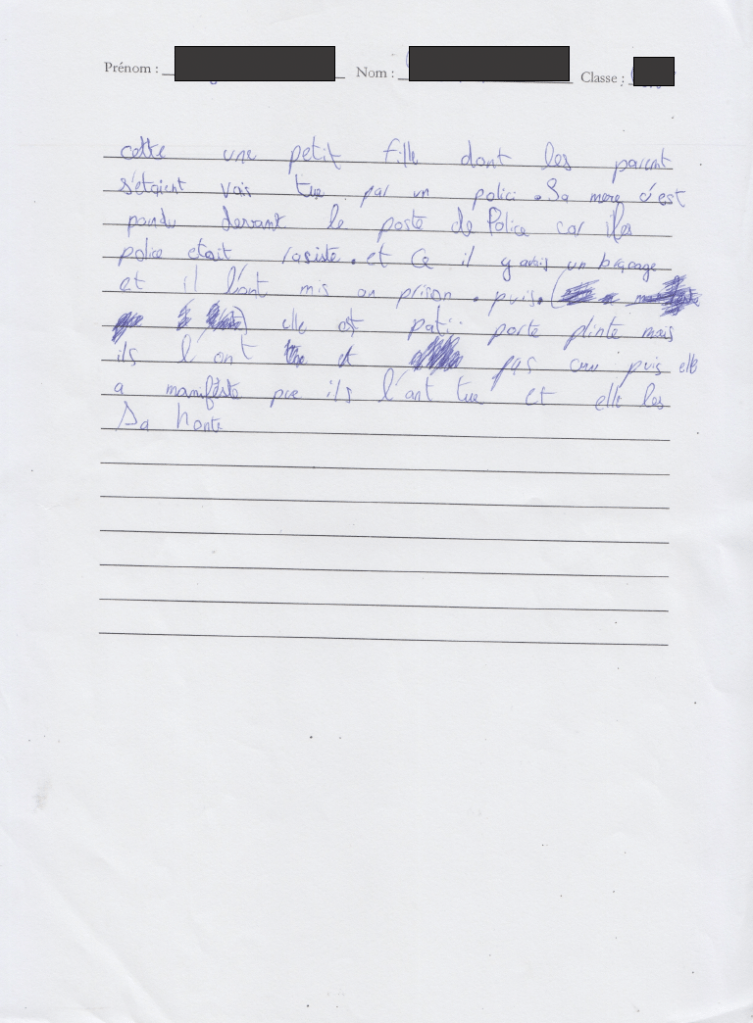 Prénom : Nom : Classe :
cette une petit fille dont les parent
s'étaient vais tue par un polici. Sa mere c'est
pandu devant le poste de Police car iles
police etait rasiste. et Ce il y avais un braquage
et il l'ont mis an prison. puis. (
) elle est pati porte plinte mais
ils l'ont et pas cru puis elle
a manifeste pue ils l'ant tue et elle les
Sa honte